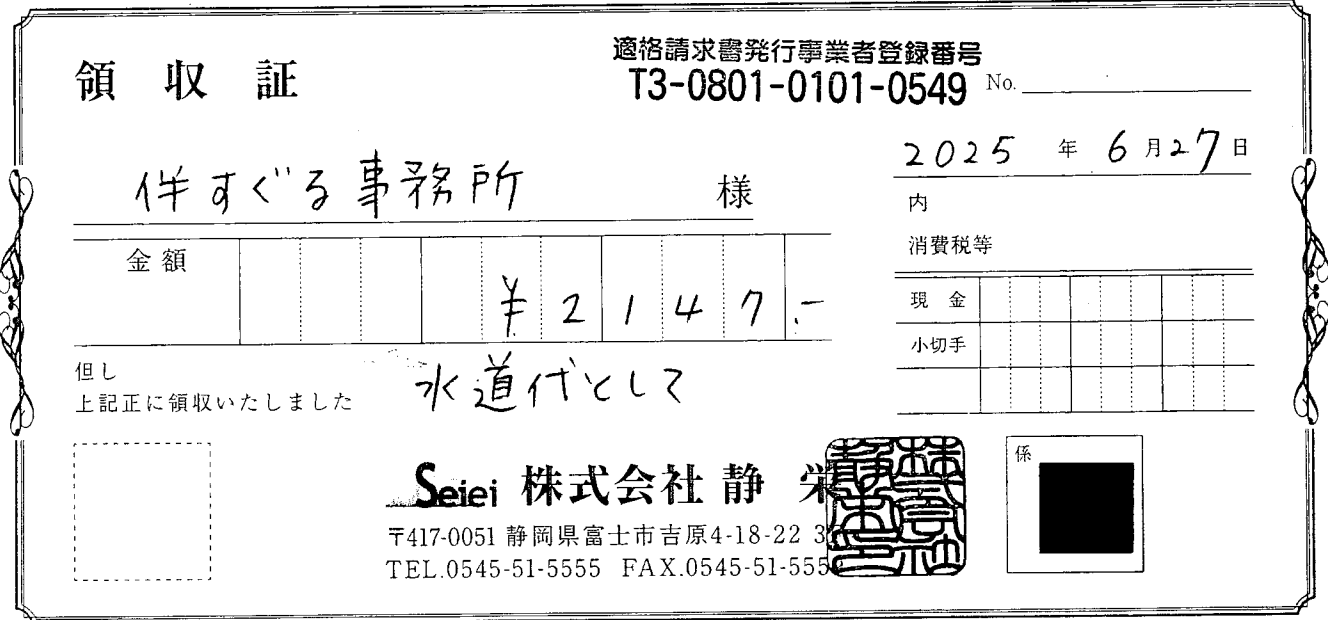 領収証
適格請求書発行事業者登録番号
T3-0801-0101-0549
No.
2025 年 6月27日
伴すぐる事務所 様
内
消費税等
金額 ¥2147.-
現金
小切手
但し 水道代として
上記正に領収いたしました
Seiei 株式会社 静 栄
〒417-0051 静岡県富士市吉原4-18-22
TEL.0545-51-5555 FAX.0545-51-555
係